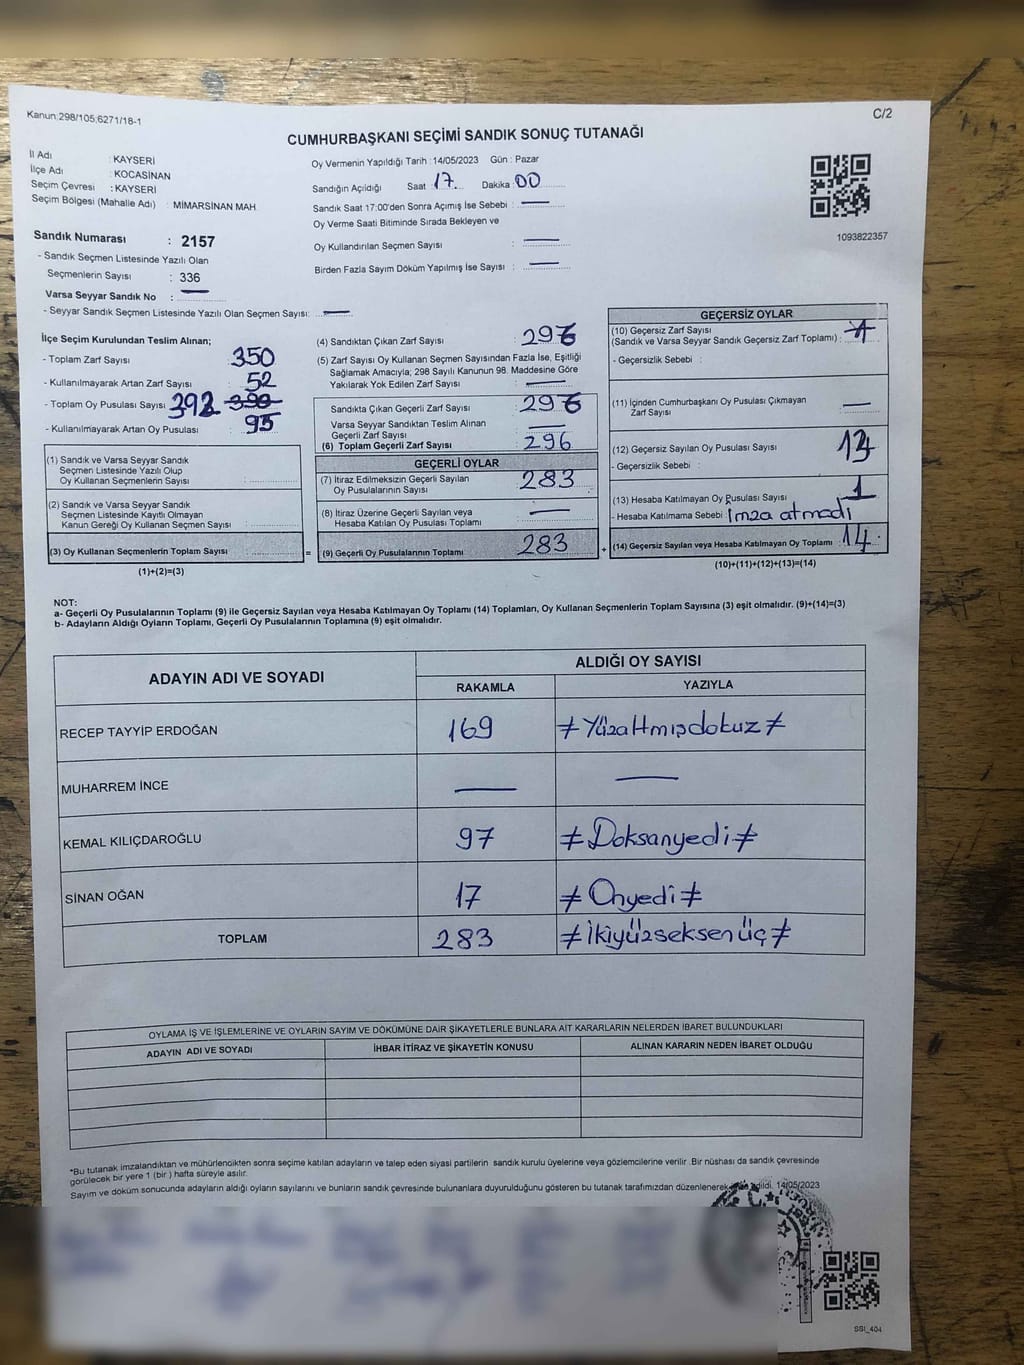 Kanun:298/105;6271/18-1
C/2
CUMHURBAŞKANI SEÇİMİ SANDIK SONUÇ TUTANAĞI
İl Adı : KAYSERİ
İlçe Adı : KOCASİNAN
Seçim Çevresi : KAYSERİ
Seçim Bölgesi (Mahalle Adı) : MİMARSİNAN MAH.
Oy Vermenin Yapıldığı Tarih :14/05/2023 Gün : Pazar
Sandığın Açıldığı Saat :17 Dakika :00
Sandık Saat 17:00'den Sonra Açımış İse Sebebi : —
Oy Verme Saati Bitiminde Sırada Bekleyen ve
Oy Kullandırılan Seçmen Sayısı : —
Birden Fazla Sayım Döküm Yapılmış İse Sayısı : —
1093822357
Sandık Numarası : 2157
- Sandık Seçmen Listesinde Yazılı Olan
Seçmenlerin Sayısı : 336
Varsa Seyyar Sandık No : —
- Seyyar Sandık Seçmen Listesinde Yazılı Olan Seçmen Sayısı: —
İlçe Seçim Kurulundan Teslim Alınan;
- Toplam Zarf Sayısı : 350
- Kullanılmayarak Artan Zarf Sayısı : 52
- Toplam Oy Pusulası Sayısı 392
- Kullanılmayarak Artan Oy Pusulası : 95
(1) Sandık ve Varsa Seyyar Sandık
Seçmen Listesinde Yazılı Olup
Oy Kullanan Seçmenlerin Sayısı :
(2) Sandık ve Varsa Seyyar Sandık
Seçmen Listesinde Kayıtlı Olmayan
Kanun Gereği Oy Kullanan Seçmen Sayısı :
(3) Oy Kullanan Seçmenlerin Toplam Sayısı =
(1)+(2)=(3)
(4) Sandıktan Çıkan Zarf Sayısı : 296
(5) Zarf Sayısı Oy Kullanan Seçmen Sayısından Fazla İse, Eşitliği
Sağlamak Amacıyla; 298 Sayılı Kanunun 98. Maddesine Göre
Yakılarak Yok Edilen Zarf Sayısı : —
Sandıkta Çıkan Geçerli Zarf Sayısı : 296
Varsa Seyyar Sandıktan Teslim Alınan
Geçerli Zarf Sayısı : —
(6) Toplam Geçerli Zarf Sayısı : 296
GEÇERLİ OYLAR
(7) İtiraz Edilmeksizin Geçerli Sayılan
Oy Pusulalarının Sayısı : 283
(8) İtiraz Üzerine Geçerli Sayılan veya
Hesaba Katılan Oy Pusulası Toplamı : —
(9) Geçerli Oy Pusulalarının Toplamı 283 +
GEÇERSİZ OYLAR
(10) Geçersiz Zarf Sayısı
(Sandık ve Varsa Seyyar Sandık Geçersiz Zarf Toplamı) :
- Geçersizlik Sebebi :
(11) İçinden Cumhurbaşkanı Oy Pusulası Çıkmayan
Zarf Sayısı : —
(12) Geçersiz Sayılan Oy Pusulası Sayısı : 13
- Geçersizlik Sebebi :
(13) Hesaba Katılmayan Oy Pusulası Sayısı : 1
- Hesaba Katılmama Sebebi : İmza atmadı
(14) Geçersiz Sayılan veya Hesaba Katılmayan Oy Toplamı : 14
(10)+(11)+(12)+(13)=(14)
NOT:
a- Geçerli Oy Pusulalarının Toplamı (9) ile Geçersiz Sayılan veya Hesaba Katılmayan Oy Toplamı (14) Toplamları, Oy Kullanan Seçmenlerin Toplam Sayısına (3) eşit olmalıdır. (9)+(14)=(3)
b- Adayların Aldığı Oyların Toplamı, Geçerli Oy Pusulalarının Toplamına (9) eşit olmalıdır.
ADAYIN ADI VE SOYADI
ALDIĞI OY SAYISI
RAKAMLA YAZIYLA
RECEP TAYYİP ERDOĞAN 169 ≠Yüzaltmışdokuz≠
MUHARREM İNCE — —
KEMAL KILIÇDAROĞLU 97 ≠Doksanyedi≠
SİNAN OĞAN 17 ≠Onyedi≠
TOPLAM 283 ≠İkiyüzseksenüç≠
OYLAMA İŞ VE İŞLEMLERİNE VE OYLARIN SAYIM VE DÖKÜMÜNE DAİR ŞİKAYETLERLE BUNLARA AİT KARARLARIN NELERDEN İBARET BULUNDUKLARI
ADAYIN ADI VE SOYADI İHBAR İTİRAZ VE ŞİKAYETİN KONUSU ALINAN KARARIN NEDEN İBARET OLDUĞU
*Bu tutanak imzalandıktan ve mühürlendikten sonra seçime katılan adayların ve talep eden siyasi partilerin sandık kurulu üyelerine veya gözlemcilerine verilir .Bir nüshası da sandık çevresinde
görülecek bir yere 1 (bir ) hafta süreyle asılır.
Sayım ve döküm sonucunda adayların aldığı oyların sayılarını ve bunların sandık çevresinde bulunanlara duyurulduğunu gösteren bu tutanak tarafımızdan düzenlenerek 14/05/2023
SSI_404